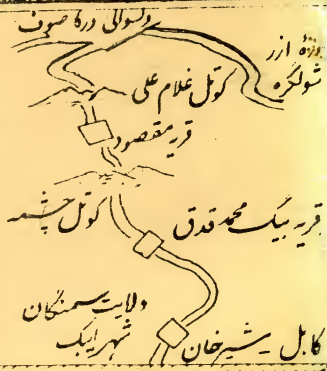 ولسوالی دره صوف
دزهٔ ازر
شولگره
کوتل غلام علی
قریه مقصود
کوتل چشمه
قریه بیگ محمد قدق
ولایت سمنگان
شهر ایبک
کابل _ شیرخان